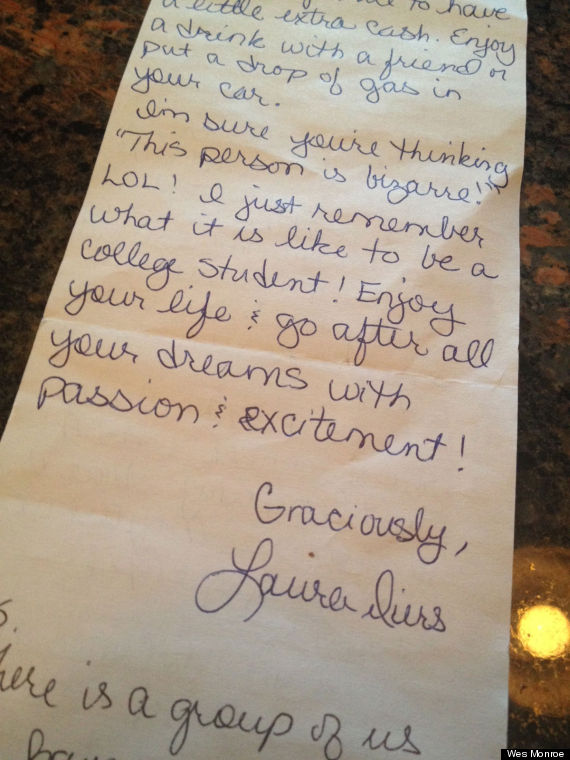 to have
a little extra cash. Enjoy
a drink with a friend or
put a drop of gas in
your car.
I'm sure you're thinking
"This person is bizarre!"
LOL! I just remember
what it is like to be a
college student! Enjoy
your life & go after all
your dreams with
passion & excitement!
Graciously,
Laura
S.
here is a group of us
Wes Monroe